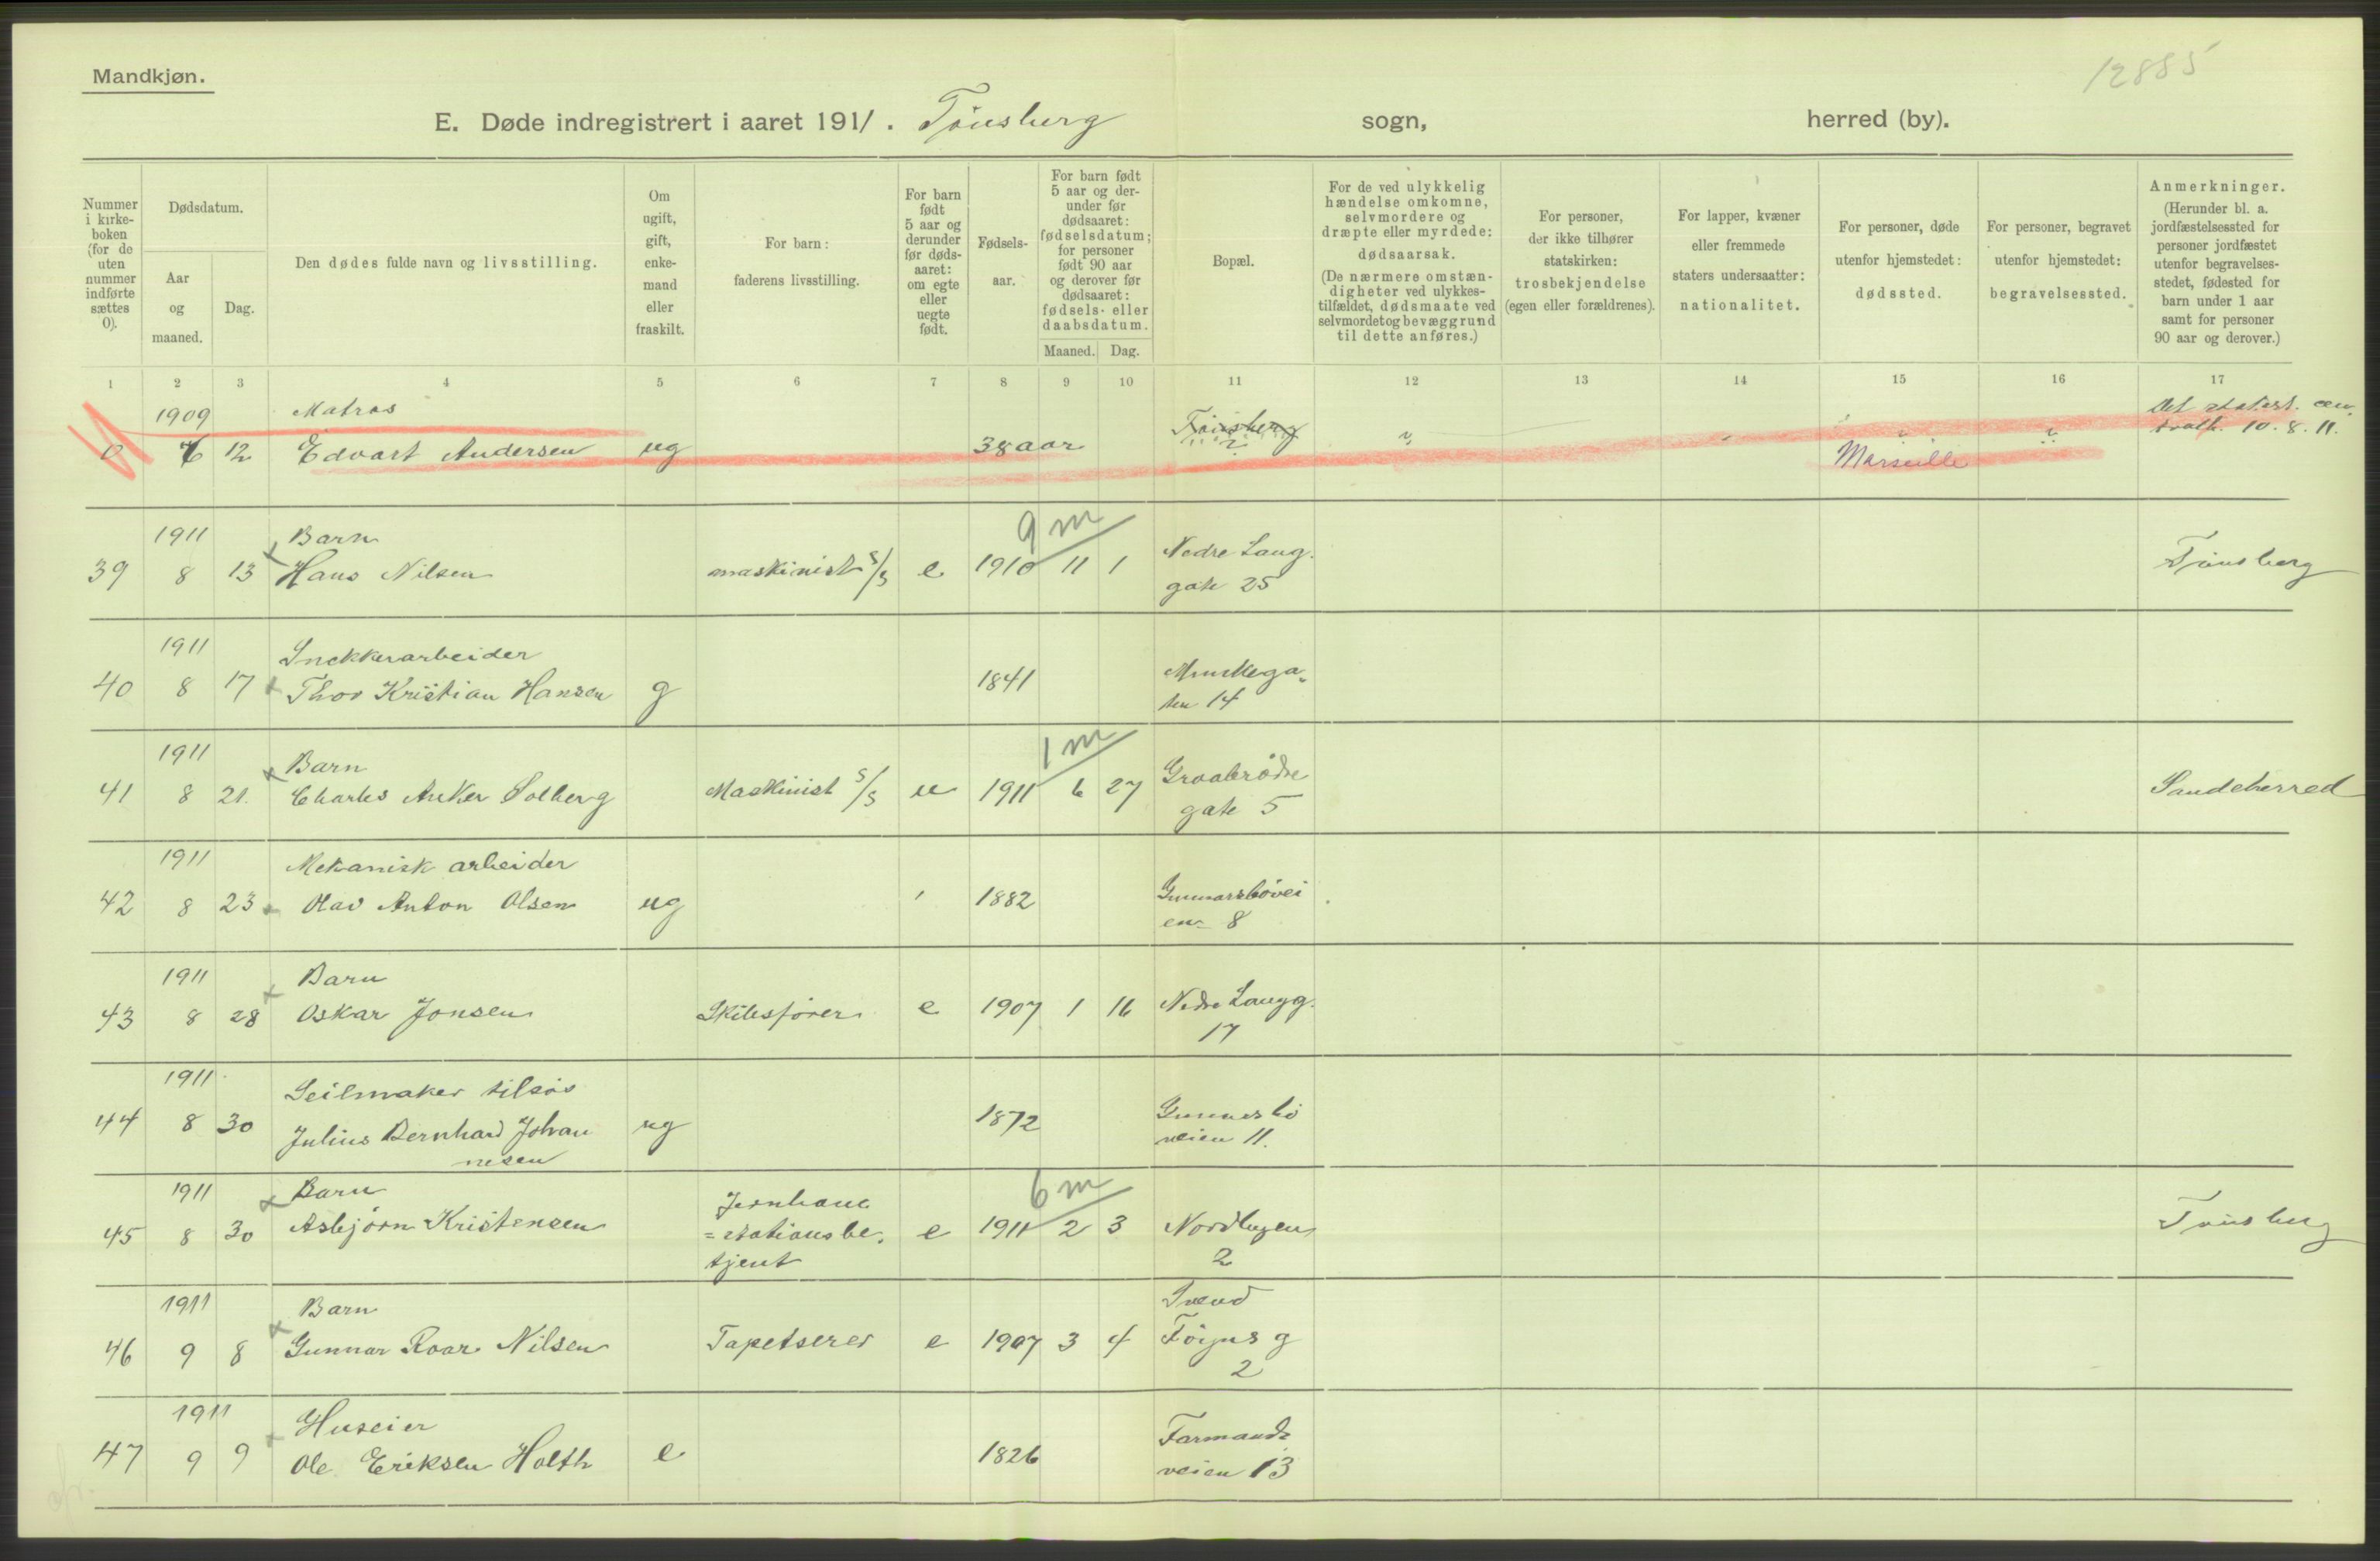 Mandkjøn.
12885
E. Døde indregistrert i aaret 1911. Tönsberg sogn, herred (by).
Nummer i kirke-boken (for de uten nummer indførte sættes 0).
Dødsdatum.
Aar og maaned.
Dag.
Den dødes fulde navn og livsstilling.
Om ugift, gift, enke-mand eller fraskilt.
For barn: faderens livsstilling.
For barn født 5 aar og derunder før døds-aaret: om egte eller uegte født.
Fødsels-aar.
For barn født 5 aar og der-under før dødsaaret: fødselsdatum; for personer født 90 aar og derover før dødsaaret: fødsels- eller daabsdatum.
Maaned. Dag.
Bopæl.
For de ved ulykkelig hændelse omkomne, selvmordere og dræpte eller myrdede: dødsaarsak. (De nærmere omstæn-digheter ved ulykkes-tilfældet, dødsmaate ved selvmordet og bevæggrund til dette anføres.)
For personer, der ikke tilhører statskirken: trosbekjendelse (egen eller forældrenes).
For lapper, kvæner eller fremmede staters undersaatter: nationalitet.
For personer, døde utenfor hjemstedet: dødssted.
For personer, begravet utenfor hjemstedet: begravelsessted.
Anmerkninger. (Herunder bl. a. jordfæstelsessted for personer jordfæstet utenfor begravelses-stedet, fødested for barn under 1 aar samt for personer 90 aar og derover.)
1 2 3 4 5 6 7 8 9 10 11 12 13 14 15 16 17
1909 Matros Tönsberg Det statist. cen.
0 6 12 Edvart Andersen ug 38 aar ? Marseille 10.8.11.
1911 Barn 9 m Nedre Lang.
39 8 13 Hans Nilsen maskinist s/s e 1910 11 1 gate 25 Tönsberg
1911 Snekkerarbeider Munkega-
40 8 17 Thor Kristian Hansen g 1841 ten 14
1911 Barn 1 m Graabrödre
41 8 21. Charles Anker Solberg Maskinist s/s u 1911 6 27 gate 5 Sandeherred
1911 Mekanisk arbeider Gunnarsbövei
42 8 23 Olav Anton Olsen ug 1882 en 8
1911 Barn
43 8 28 Oskar Jonsen Skibsförer e 1907 1 16 Nedre Langg.
17
1911 Seilmaker tilsös Gunnarsbö
44 8 30 Julius Bernhard Johan ug 1872 veien 11.
nesen
1911 Barn Jernbane 6 m
45 8 30 Asbjörn Kristensen =stationsbe. e 1911 2 3 Nordbyen Tönsberg
tjent 2
1911 Barn Svend
46 9 8 Gunnar Roar Nilsen Tapetserer e 1907 3 4 Föyns g
2
1911 Huseier Farmands
47 9 9 Ole Eriksen Holth e 1826 veien 13